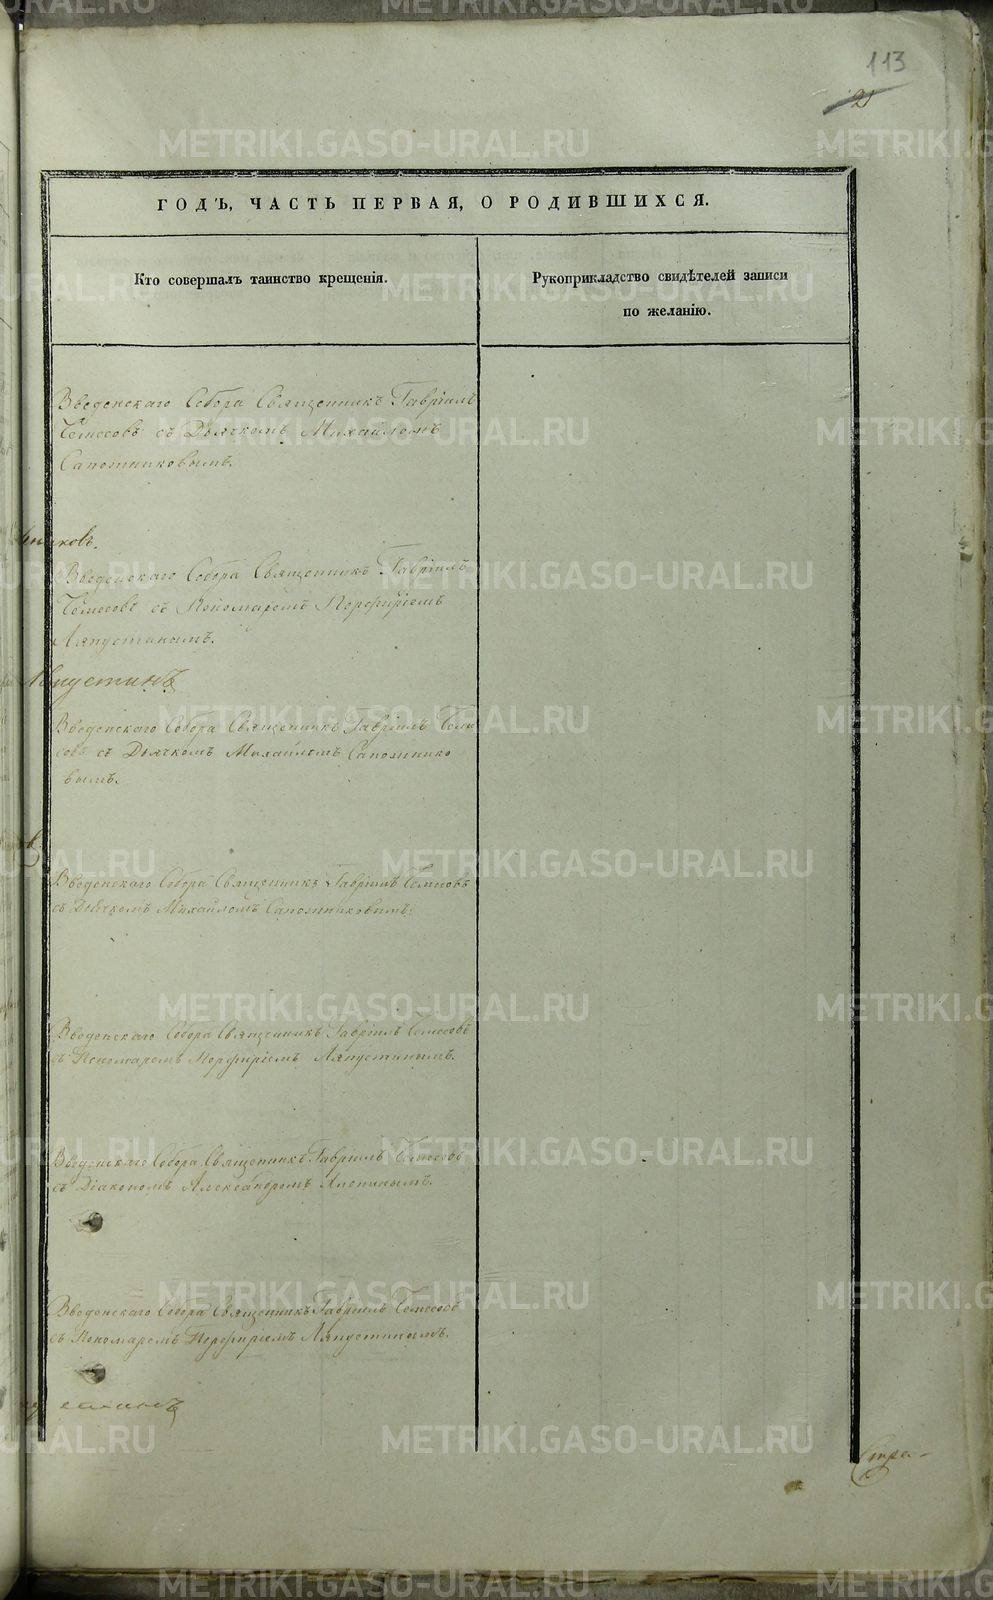 113
2
ГОДЪ, ЧАСТЬ ПЕРВАЯ, О РОДИВШИХСЯ.
Кто совершалъ таинство крещенія.
Рукоприкладство свидѣтелей записи
по желанію.
Введенскаго Собора Священникъ Гавріилъ
съ Дьячкомъ Михайломъ
Сапожниковымъ.
Введенскаго Собора Священникъ Гавріилъ
съ Пономаремъ Порфиріемъ
Ляпустинымъ.
Введенскаго Собора Священникъ Гавріилъ
съ Дьячкомъ Михайломъ Сапожнико
вымъ.
Введенскаго Собора Священникъ Гавріилъ
съ Дьячкомъ Михайломъ Сапожниковымъ.
Введенскаго Собора Священникъ Гавріилъ
съ Пономаремъ Порфиріемъ Ляпустинымъ.
Введенскаго Собора Священникъ Гавріилъ
съ Діакономъ Александромъ
Введенскаго Собора Священникъ Гавріилъ
съ Пономаремъ Порфиріемъ Ляпустинымъ.
METRIKI.GASO-URAL.RU